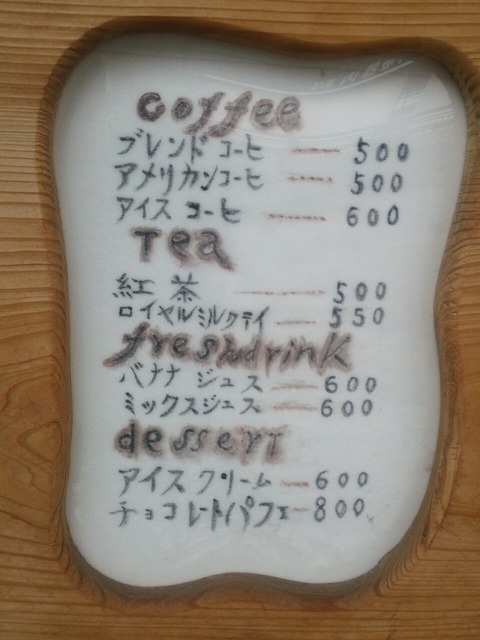 coffee
ブレンドコーヒ — 500
アメリカンコーヒ — 500
アイスコーヒ — 600
Tea
紅茶 — 500
ロイヤルミルクテイ — 550
freshdrink
バナナジュス — 600
ミックスジュス — 600
dessert
アイスクリーム — 600
チョコレートパフェ — 800